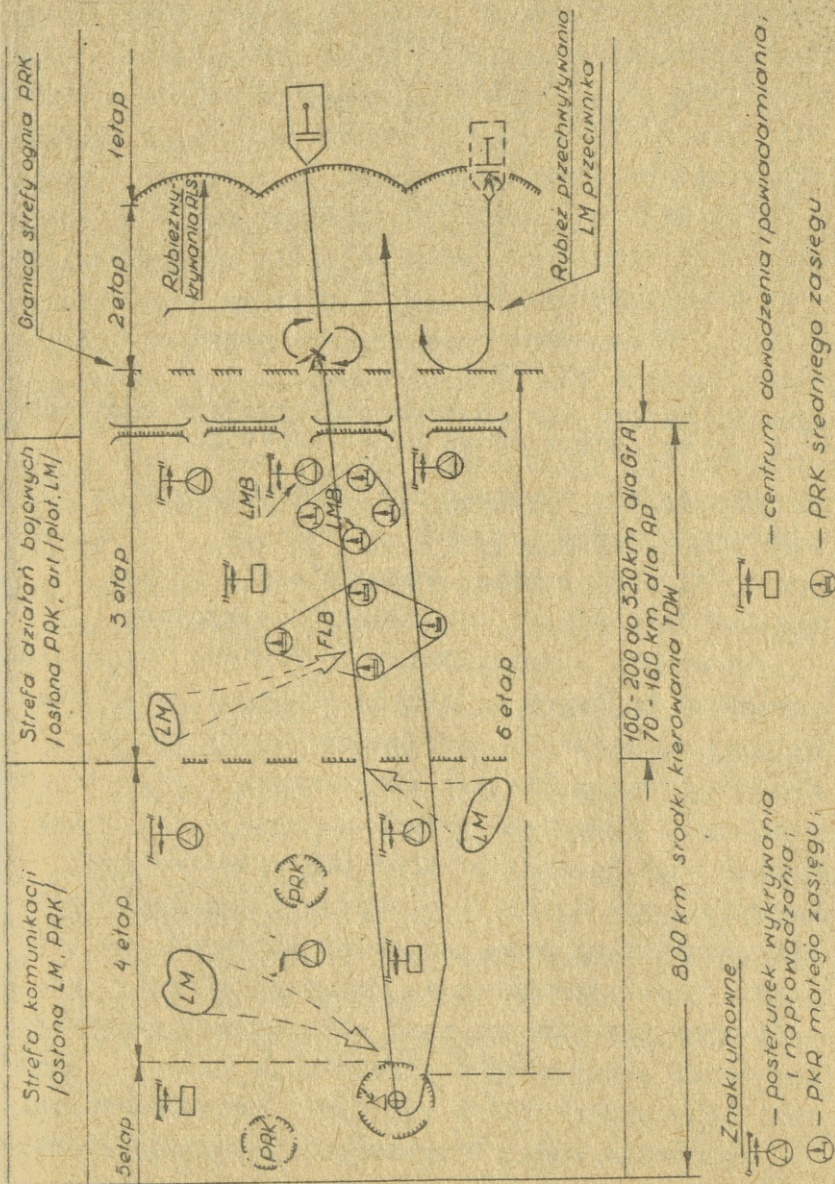 Strefa komunikacji
/osłona LM, PRK/
Strefa działań bojowych
/osłona PRK, art/plot, LM/
Granica strefy ognia PRK
5 etap
4 etap
3 etap
2 etap
1 etap
Rubież wy-
krywania RLS
PRK
LM
PRK
LM
LM
FLB
LMB
LMB
6 etap
Rubież przechwytywania
LM przeciwnika
160-200 do 320km dla GrA
70-160 km dla AP
800 km środki kierowania TDW
Znaki umowne
– posterunek wykrywania
i naprowadzania;
– PKR małego zasięgu;
– centrum dowodzenia i powiadamiania;
– PRK średniego zasięgu.